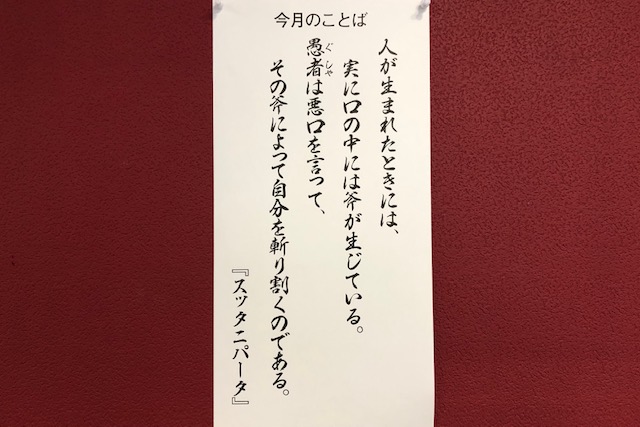 今月のことば
人が生まれたときには、
実に口の中には斧が生じている。
愚者は悪口を言つて、
ぐしゃ
その斧によつて自分を斬り割くのである。
『スッタニパータ』